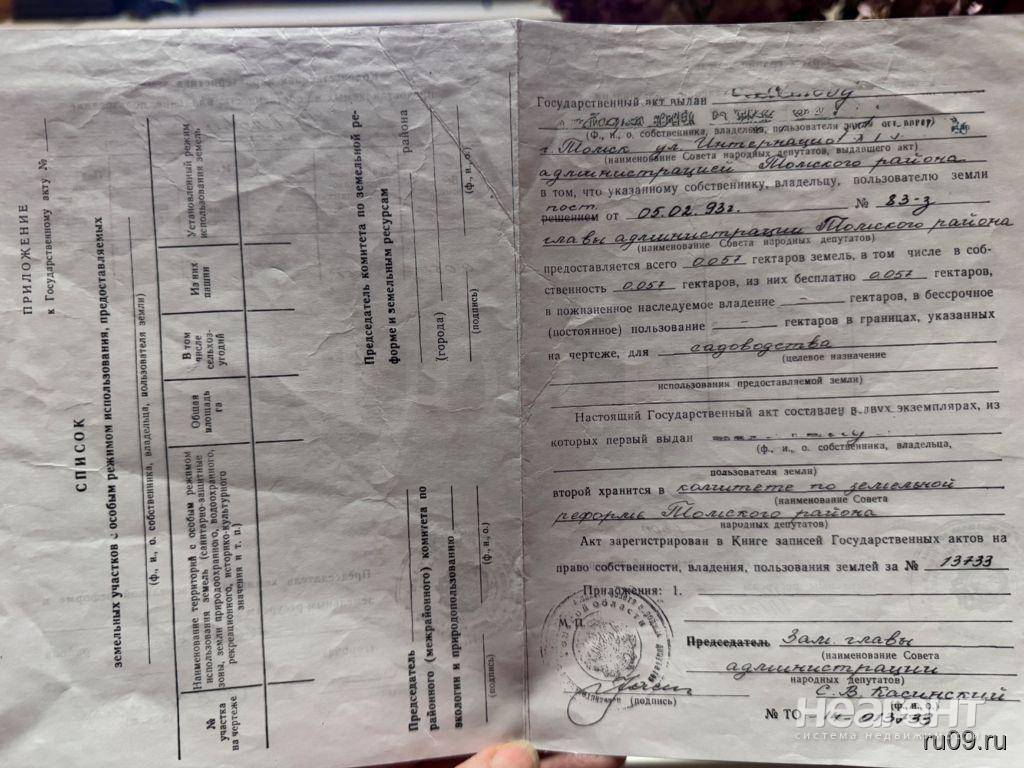 ПРИЛОЖЕНИЕ
к Государственному акту №
СПИСОК
земельных участков с особым режимом использования, предоставляемых
(ф., и., о. собственника, владельца, пользователя земли)
№ участка на чертеже
Наименование территорий с особым режимом использования земель (санитарно-защитные зоны, земли природоохранного, водоохранного, рекреационного, историко-культурного значения и т. п.)
Общая площадь га
В том числе сельхоз- угодий
Из них пашни
Установленный режим использования земель
Председатель
районного (межрайонного) комитета по
экологии и природопользованию
(подпись)
(ф., и., о.)
Председатель комитета по земельной ре-
форме и земельным ресурсам
района
(города)
(подпись)
(ф., и., о.)
Государственный акт выдан
(ф., и., о. собственника, владельца, пользователя
г. Томск ул Интернацио
(наименование Совета народных депутатов, выдавшего акт)
администрацией Томского района
в том, что указанному собственнику, владельцу, пользователю земли
пост.
решением от 05.02.93г. № 83-з
главы администрации Томского района
(наименование Совета народных депутатов)
предоставляется всего 0.057 гектаров земель, в том числе в соб-
ственность 0,057 гектаров, из них бесплатно 0,057 гектаров,
в пожизненное наследуемое владение – гектаров, в бессрочное
(постоянное) пользование – гектаров в границах, указанных
на чертеже, для садоводства
(целевое назначение
использования предоставляемой земли)
Настоящий Государственный акт составлен в двух экземплярах, из
которых первый выдан
(ф., и., о. собственника, владельца,
пользователя земли)
второй хранится в комитете по земельной
(наименование Совета
реформе Томского района
народных депутатов)
Акт зарегистрирован в Книге записей Государственных актов на
право собственности, владения, пользования землей за № 13733
Приложения: 1.
М. П.
Председатель Зам. главы
(наименование Совета
администрации
народных депутатов)
(подпись)
С. В. Касинский
(ф., и., о.)
№ ТО 14-013733
неагент
система недвижимости
ru09.ru